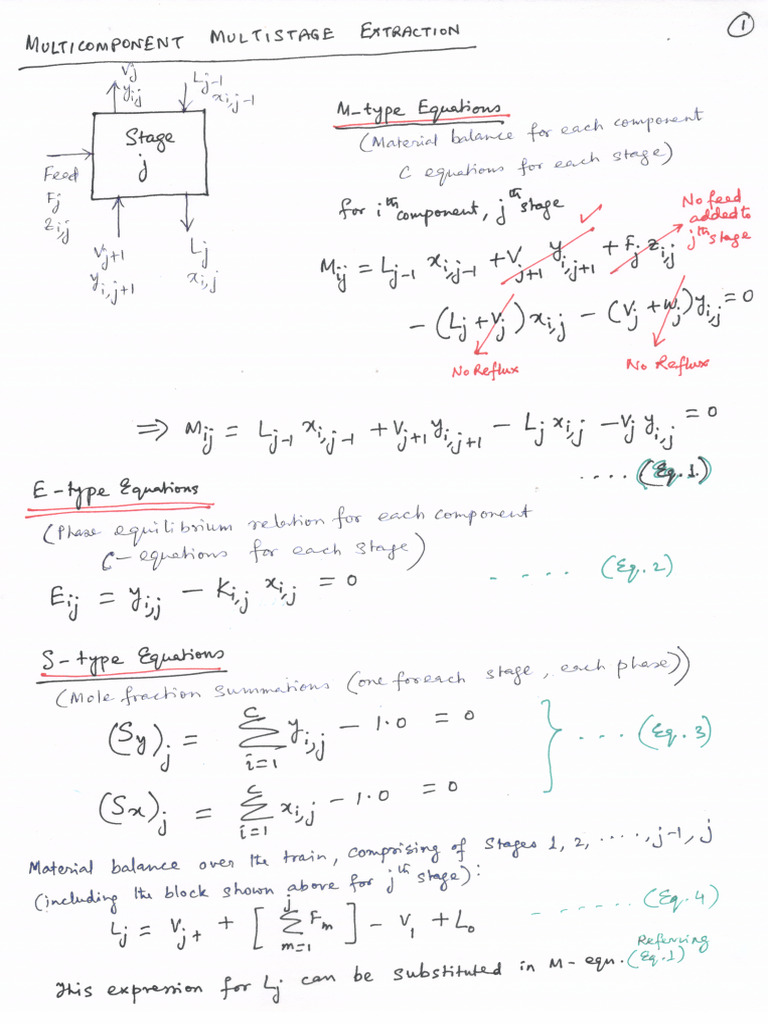 ①
MULTICOMPONENT MULTISTAGE EXTRACTION
Vj
yi,j
Lj-1
xi,j-1
Stage
j
Feed
Fj
zi,j
Vj+1
yi,j+1
Lj
xi,j
M-type Equations
(Material balance for each component
C equations for each stage)
for ith component, jth stage
No feed
added to
jth stage
Mij = Lj-1 xi,j-1 + Vj+1 yi,j+1 + Fj zi,j
- (Lj + Vj) xi,j - (Vj + Wj) yi,j = 0
No Reflux
No Reflux
⇒ Mij = Lj-1 xi,j-1 + Vj+1 yi,j+1 - Lj xi,j - Vj yi,j = 0
.... (Eq. 1.)
E-type Equations
(Phase equilibrium relation for each component
C-equations for each stage)
Eij = yi,j - Ki,j xi,j = 0 - - . . . . (Eq. 2)
S-type Equations
(Mole fraction summations (one for each stage, each phase))
(Sy)j = C∑i=1 yi,j - 1.0 = 0
} . . . . (Eq. 3)
(Sx)j = C∑i=1 xi,j - 1.0 = 0
Material balance over the train, comprising of stages 1, 2, ....., j-1, j
(including the block shown above for jth stage):
Lj = Vj+ + [ j∑m=1 Fm ] - V1 + L0 - - - ...... (Eq. 4)
Referring
This expression for Lj can be substituted in M-eqn. (Eq. 1)